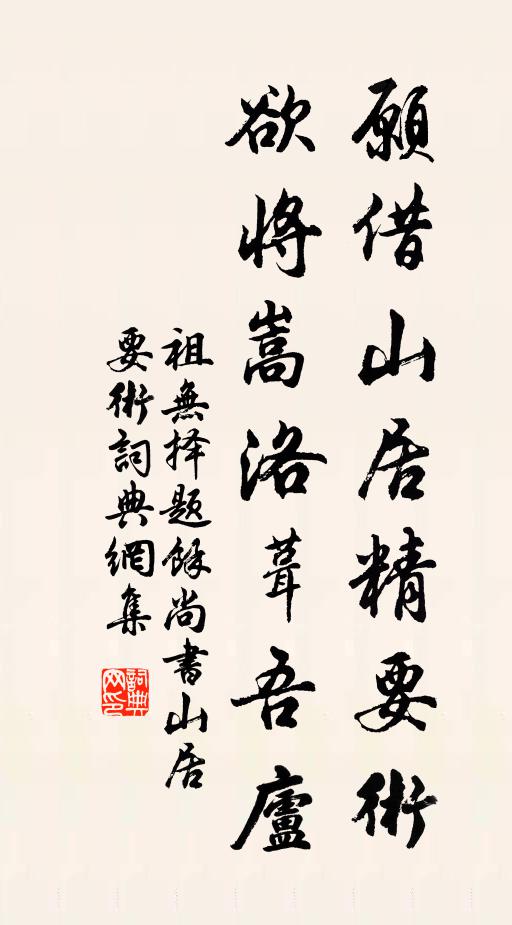 願借山居精要術
欲將嵩洛葺吾廬
祖無择题餘尚書山居
要術詞典網集
詞典网印